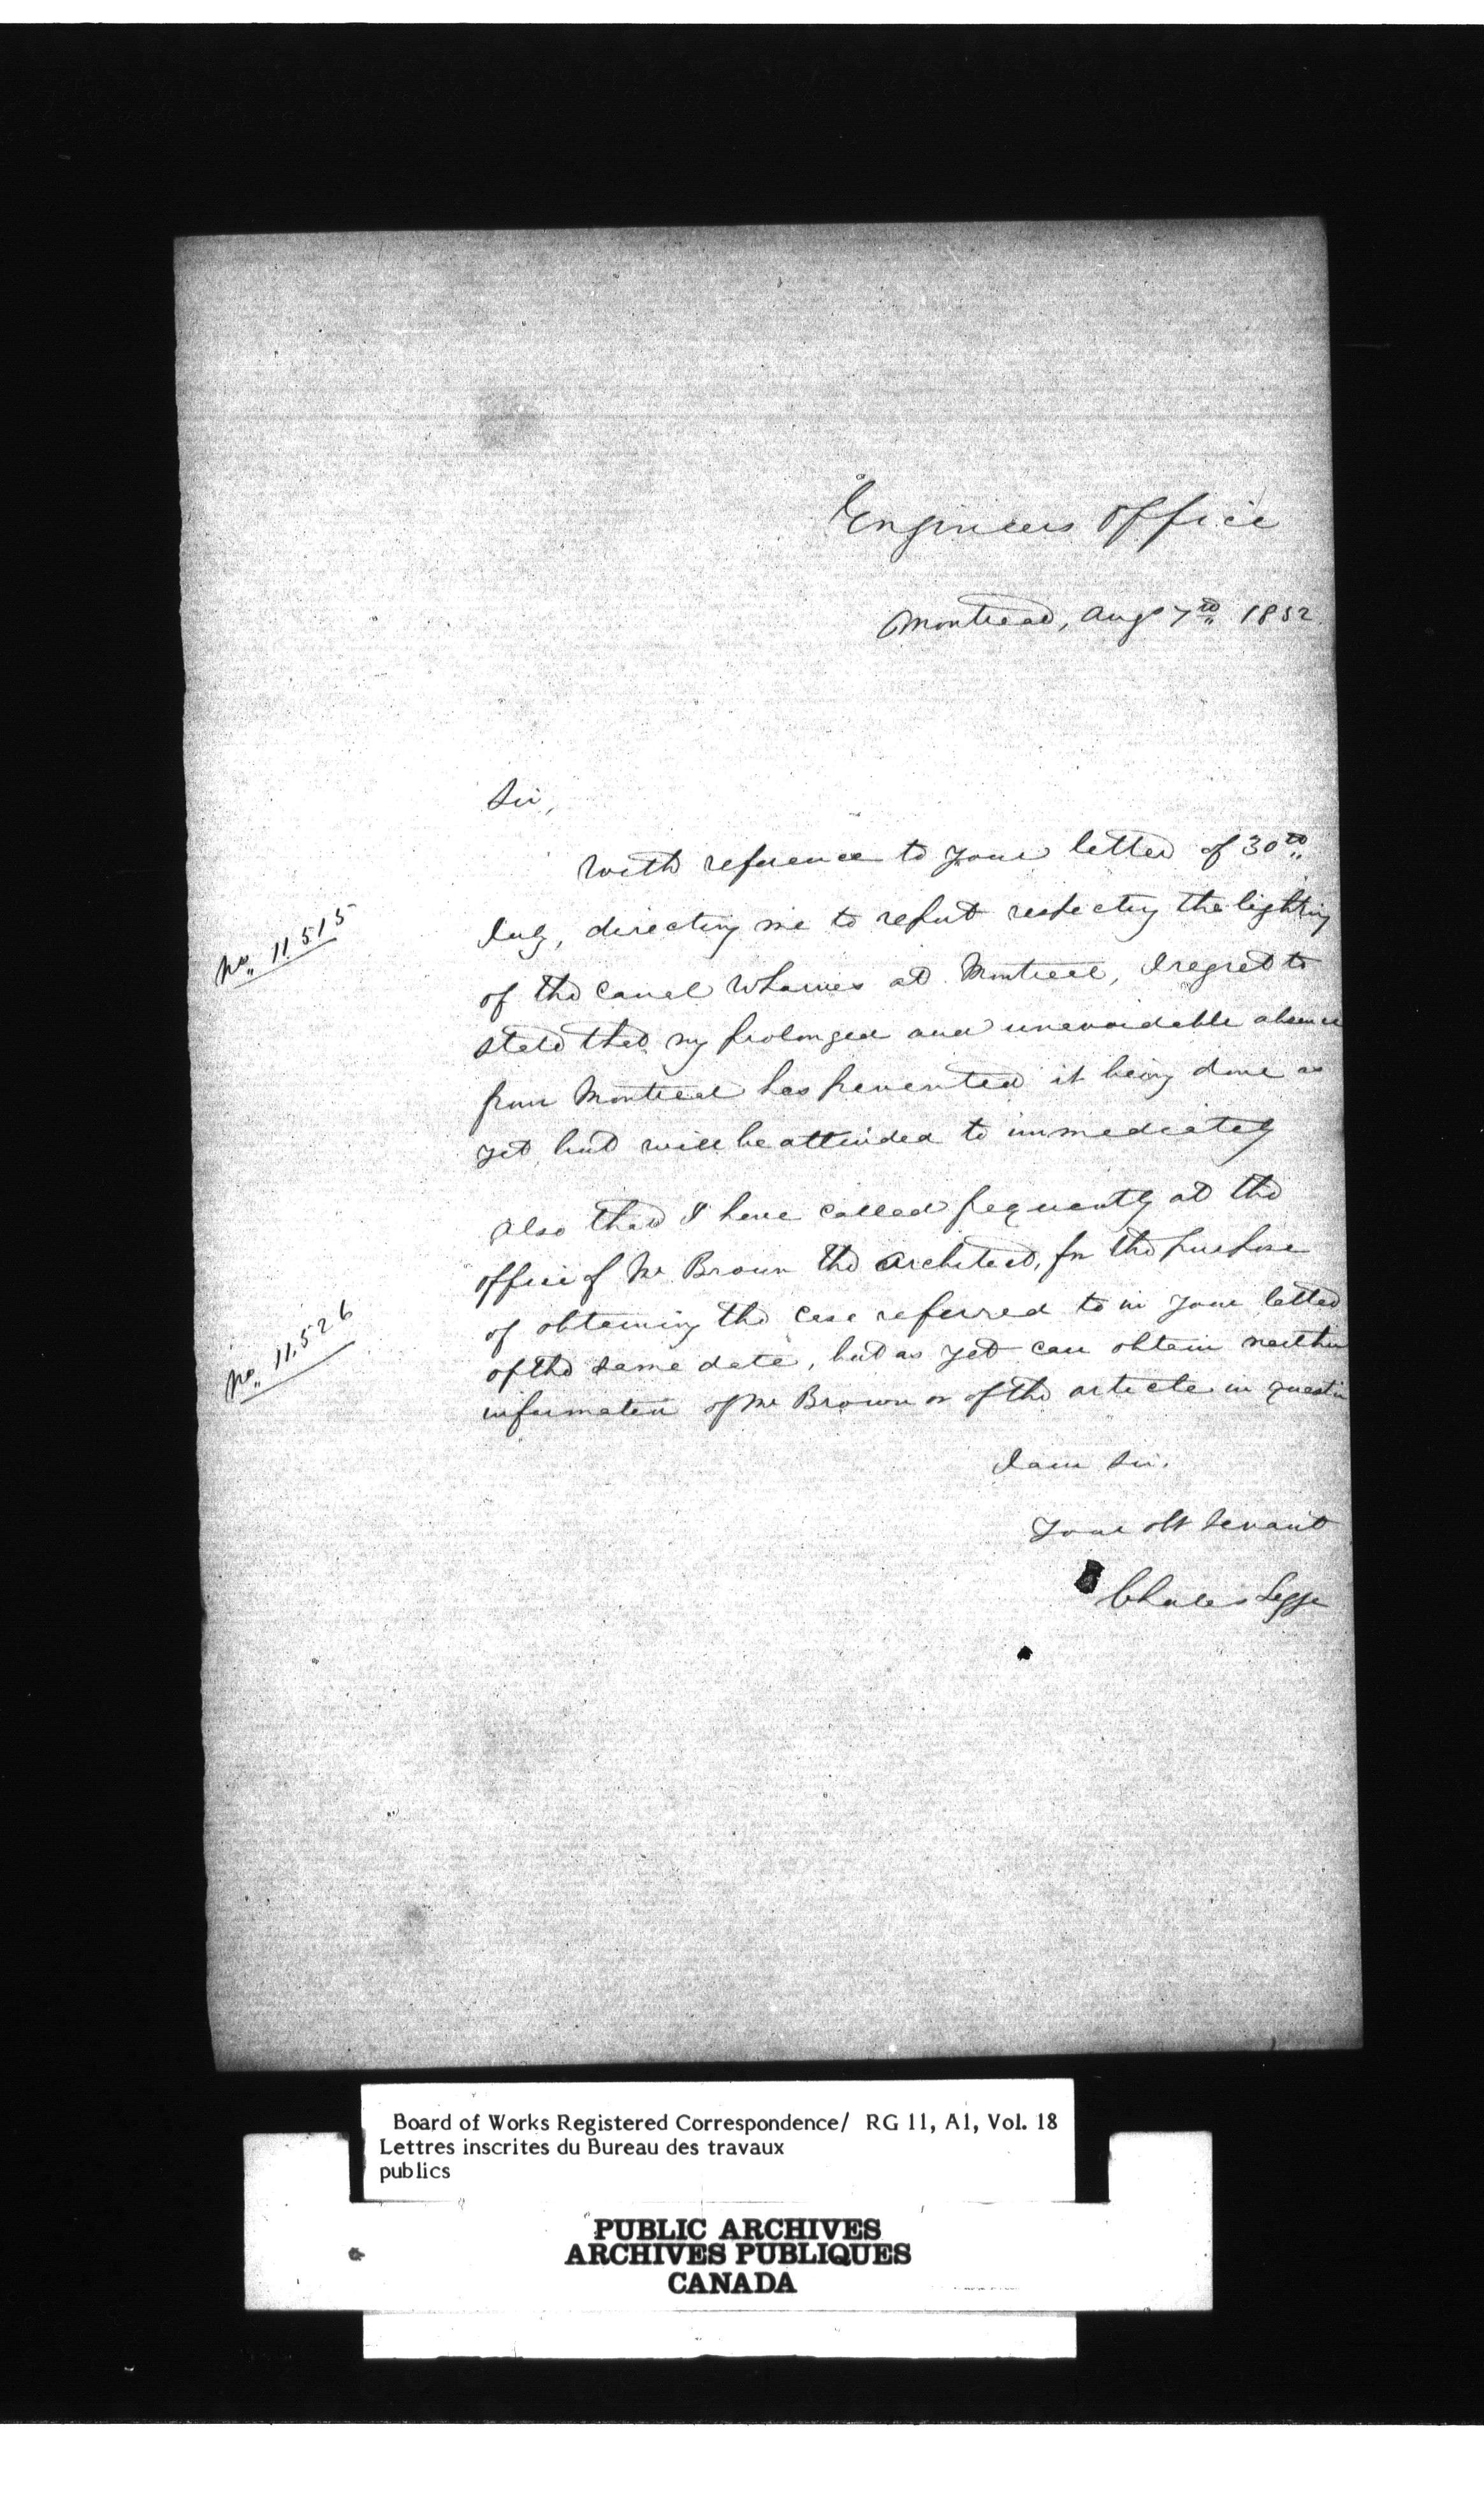 Engineers Office
Montreal, Aug 7th 1852
Sir,
With reference to your letter of 30th
No. 11.515
July, directing me to report respecting the lighting
of the Canal Wharves at Montreal, I regret to
state that my prolonged and unavoidable absence
from Montreal has prevented it being done as
yet, but will be attended to immediately
Also that I have called frequently at the
office of Mr Brown the Architect, for the purpose
No. 11.526
of obtaining the case referred to in your letter
of the same date, but as yet can obtain neither
information of Mr Brown or of the article in question
I am Sir.
Your obt Servant
Charles Legge
Board of Works Registered Correspondence/ RG 11, A1, Vol. 18
Lettres inscrites du Bureau des travaux
publics
PUBLIC ARCHIVES
ARCHIVES PUBLIQUES
CANADA